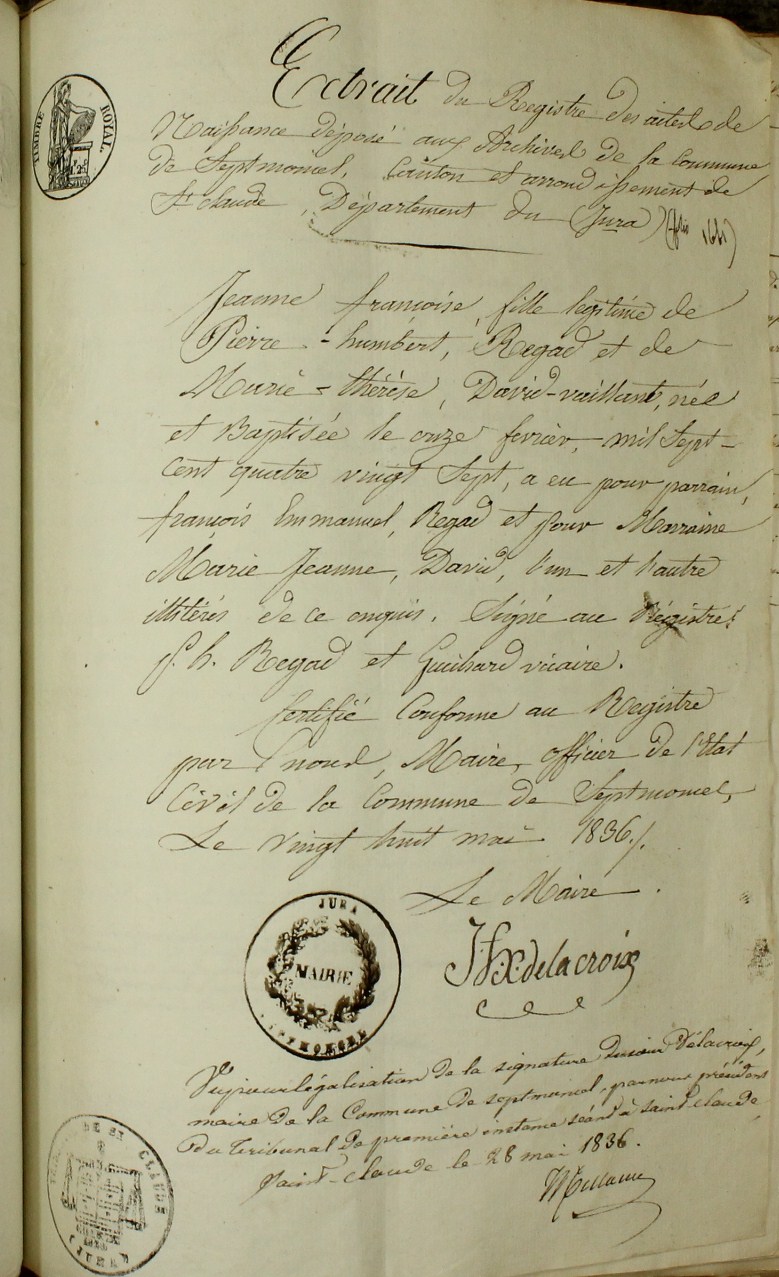 TIMBRE ROYAL.
Extrait du Registre des actes de
Naissance déposé aux Archives de la commune
de Septmoncel, Canton et arrondissement de
St Claude, Département du (Jura)
Jeanne françoise, fille légitime de
Pierre-humbert, Regad et de
Marie-thérèse, David-vaillant, née
et Baptisée le onze fevrier, mil Sept-
Cent quatre vingt Sept, a eu pour parrain,
françois Emmanuel, Regad et pour Marraine
Marie Jeanne, David, l'un et l'autre
illitérés de ce enquis. Signé au Régistre:
p. h. Regad et vicaire.
Certifié Conforme au Registre
par nous, Maire, officier de l'Etat
Civil de la Commune de Septmoncel,
Le vingt huit mai 1836./.
Le Maire.
JURA
MAIRIE
SEPTMONCEL
J.fx. delacroix
Vu pour légalisation de la signature du sieur Délacroix,
maire de la Commune de septmoncel, par nous président
du Tribunal de première instance séant à saint-claude,
saint-claude le 28 mai 1836.
DE ST CLAUDE
(JURA)